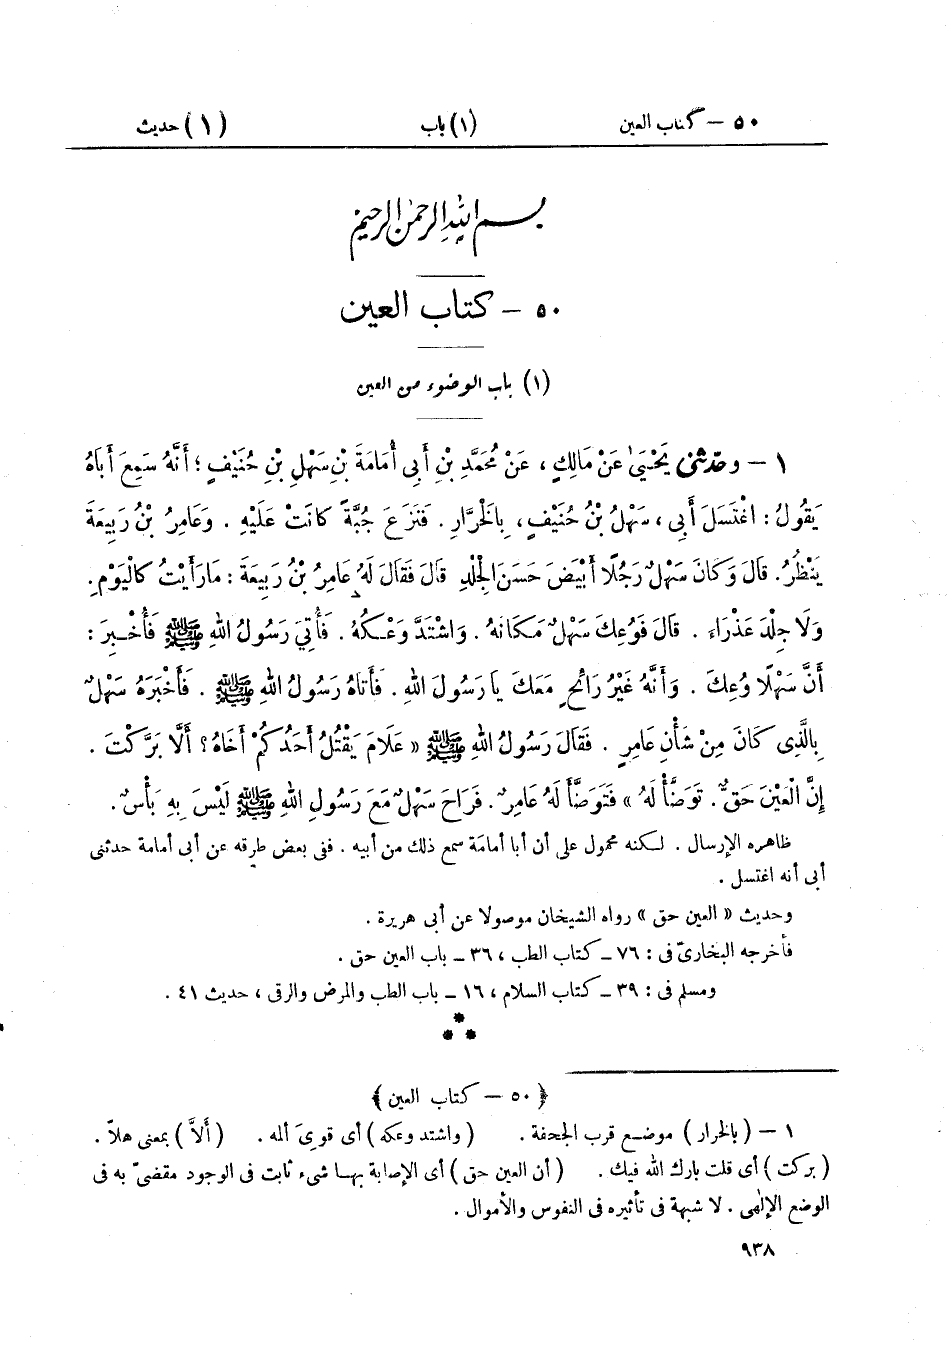 ٥٠ – كتاب العين (١) باب (١) حديث
بسم الله الرحمن الرحيم
٥٠ – كتاب العين
(١) باب الوضوء من العين
١ – وحَدَّثَنِى يَحْيَىٰ عَنْ مَالِكٍ ، عَنْ مُحَمَّدِ بْنِ أَبِى أُمَامَةَ بْنِ سَهْلِ بْنِ حُنَيْفٍ ؛ أَنَّهُ سَمِعَ أَبَاهُ
يَقُولُ : اغْتَسَلَ أَبِى ، سَهْلُ بْنُ حُنَيْفٍ ، بِالْخَرَّارِ . فَنَزَعَ جُبَّةً كَانَتْ عَلَيْهِ . وَعَامِرُ بْنُ رَبِيعَةَ
يَنْظُرُ . قَالَ وَكَانَ سَهْلٌ رَجُلًا أَبْيَضَ حَسَنَ الْجِلْدِ قَالَ فَقَالَ لَهُ عَامِرُ بْنُ رَبِيعَةَ : مَا رَأَيْتُ كَالْيَوْمِ .
وَلَا جِلْدَ عَذْرَاءَ . قَالَ فَوُعِكَ سَهْلٌ مَكَانَهُ . وَاشْتَدَّ وَعْكُهُ . فَأُتِىَ رَسُولُ اللهِ ﷺ فَأُخْبِرَ :
أَنَّ سَهْلًا وُعِكَ . وَأَنَّهُ غَيْرُ رَائِحٍ مَعَكَ يَا رَسُولَ اللهِ . فَأَتَاهُ رَسُولُ اللهِ ﷺ . فَأَخْبَرَهُ سَهْلٌ
بِالَّذِى كَانَ مِنْ شَأْنِ عَامِرٍ . فَقَالَ رَسُولُ اللهِ ﷺ « عَلَامَ يَقْتُلُ أَحَدُكُمْ أَخَاهُ ؟ أَلَّا بَرَّكْتَ .
إِنَّ الْعَيْنَ حَقٌّ . تَوَضَّأْ لَهُ » فَتَوَضَّأَ لَهُ عَامِرٌ . فَرَاحَ سَهْلٌ مَعَ رَسُولِ اللهِ ﷺ لَيْسَ بِهِ بَأْسٌ .
ظاهره الإرسال . لكنه محمول على أن أبا أمامَة سمع ذلك من أبيه . ففى بعض طرقه عن أبى أمامة حدثنى
أبى أنه اغتسل .
وحديث « العين حق » رواه الشيخان موصولا عن أبى هريرة .
فأخرجه البخارىّ فى : ٧٦ – كتاب الطب ، ٣٦ – باب العين حق .
ومسلم فى : ٣٩ – كتاب السلام ، ١٦ – باب الطب والمرض والرقى ، حديث ٤١ .
﴿ ٥٠ – كتاب العين ﴾
١ – ( بالخرار ) موضع قرب الجحفة . ( واشتد وعكه ) أى قوى ألمه . ( ألاَّ ) بمعنى هلاّ .
( بركت ) أى قلت بارك الله فيك . ( أن العين حق ) أى الإصابة بها شىء ثابت فى الوجود مقضىّ به فى
الوضع الإلٰهى . لا شبهة فى تأثيره فى النفوس والأموال .
٩٣٨